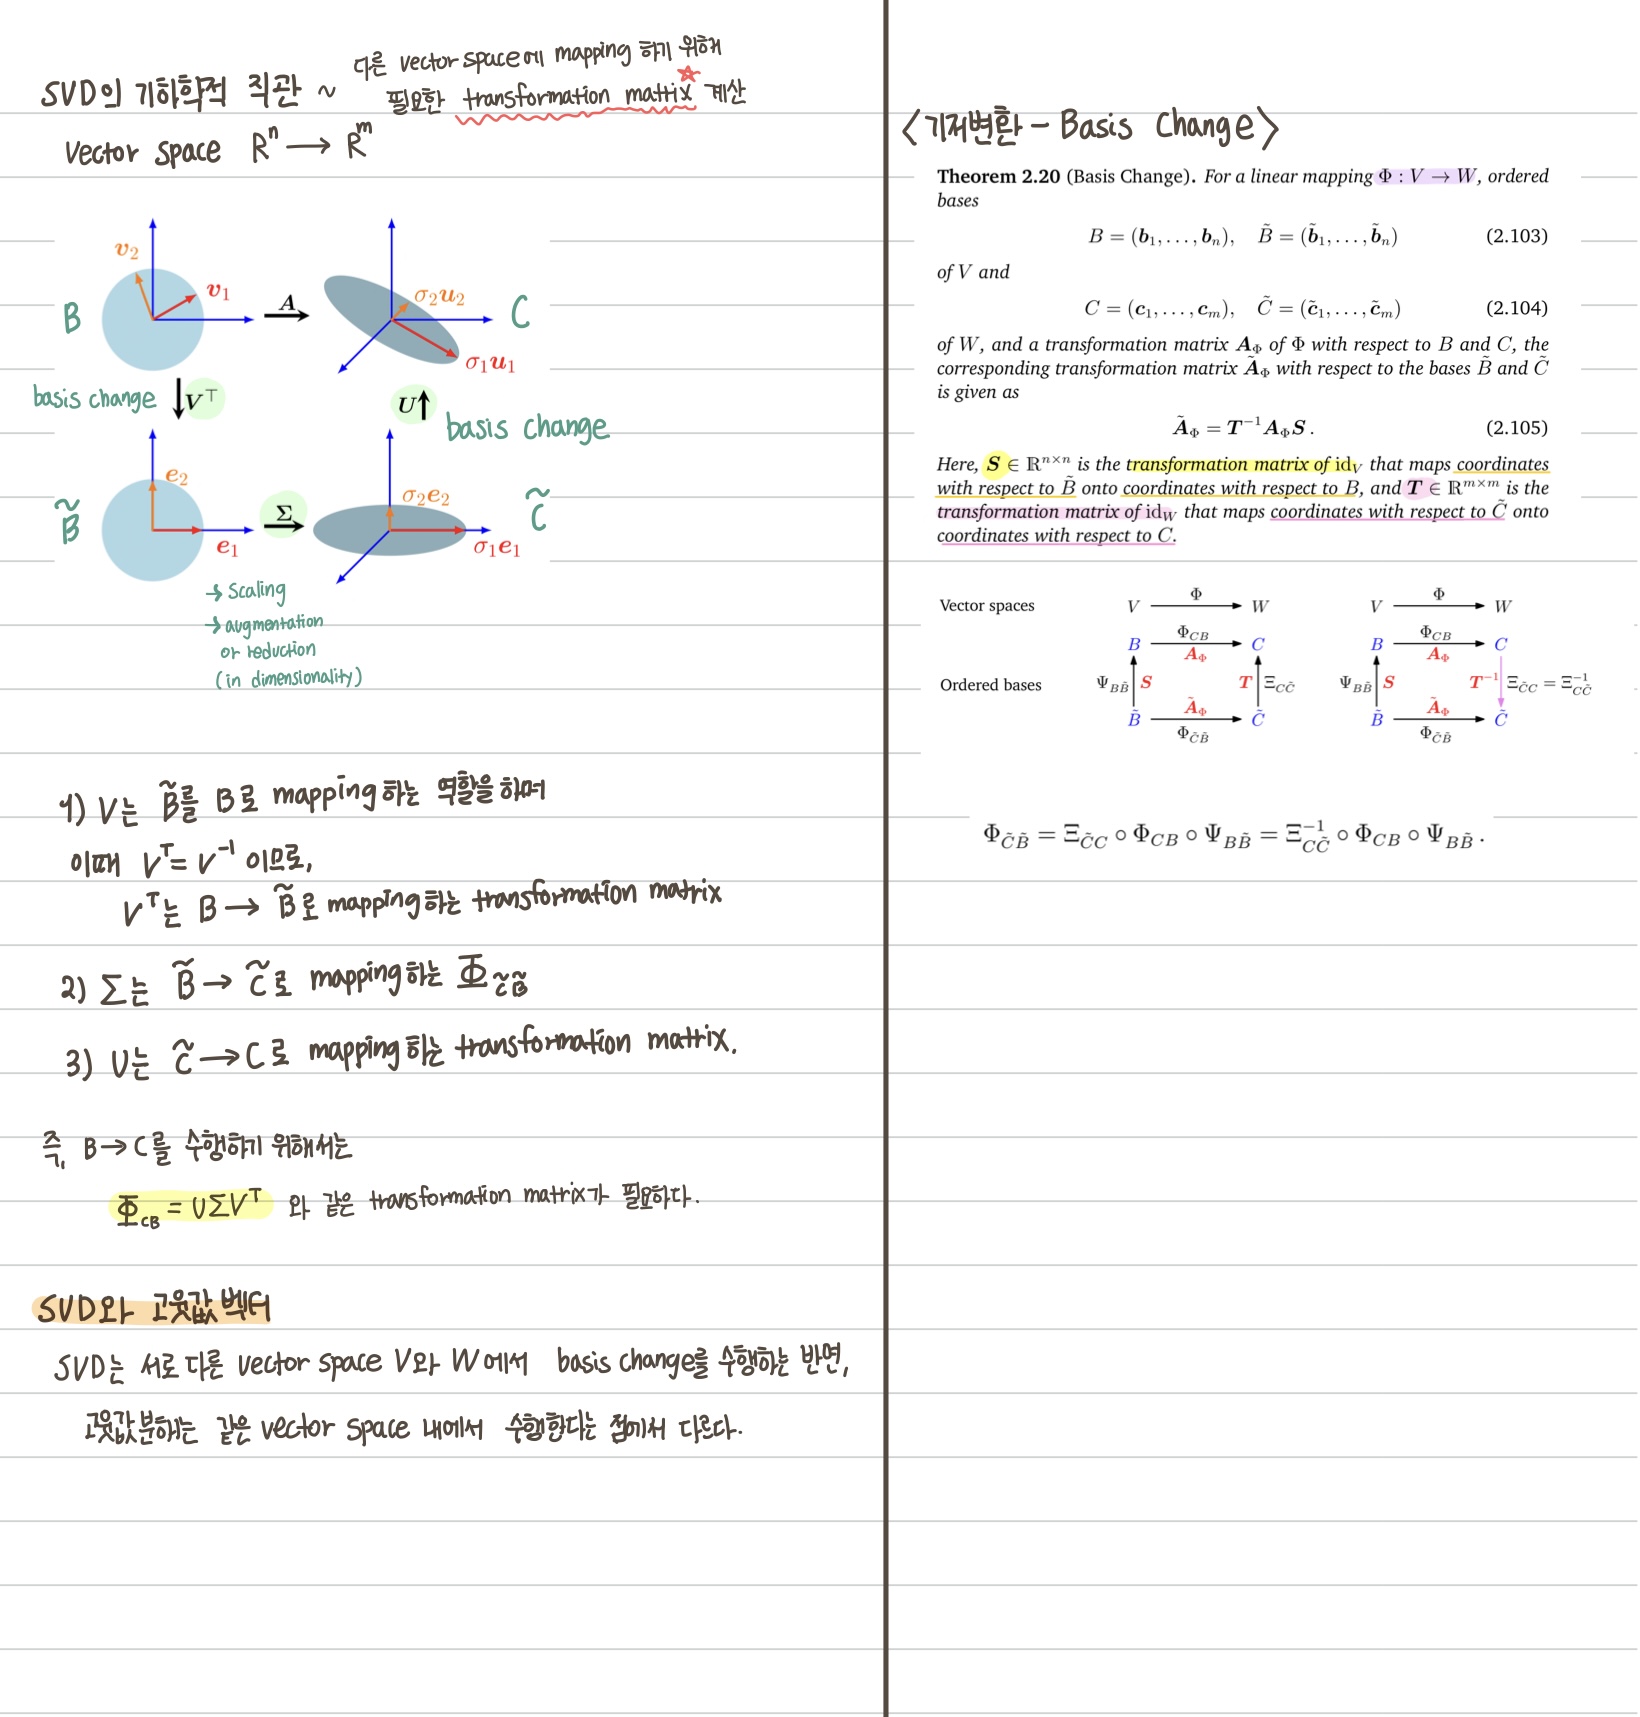 SVD의 기하학적 직관 ~ 다른 vector space에 mapping 하기 위해
필요한 transformation matrix 계산
Vector space Rⁿ → Rᵐ
v₂
v₁
B
A
σ₂u₂
σ₁u₁
C
basis change
V⊤
U
basis change
B̃
e₂
e₁
Σ
σ₂e₂
σ₁e₁
C̃
→ scaling
→ augmentation
or reduction
(in dimensionality)
1) V는 B̃를 B로 mapping하는 역할을 하며
이때 Vᵀ = V⁻¹ 이므로,
Vᵀ는 B → B̃로 mapping하는 transformation matrix
2) Σ는 B̃ → C̃로 mapping하는 Φ_C̃B̃
3) U는 C̃ → C로 mapping하는 transformation matrix.
즉, B → C를 수행하기 위해서는
Φ_CB = UΣVᵀ 와 같은 transformation matrix가 필요하다.
SVD와 고윳값벡터
SVD는 서로 다른 vector space V와 W에서 basis change를 수행하는 반면,
고윳값분해는 같은 vector space 내에서 수행한다는 점에서 다르다.
<기저변환 - Basis Change>
Theorem 2.20 (Basis Change). For a linear mapping Φ : V → W, ordered
bases
B = (b₁, . . . , bₙ), B̃ = (b̃₁, . . . , b̃ₙ) (2.103)
of V and
C = (c₁, . . . , cₘ), C̃ = (c̃₁, . . . , c̃ₘ) (2.104)
of W, and a transformation matrix A_Φ of Φ with respect to B and C, the
corresponding transformation matrix Ã_Φ with respect to the bases B̃ and C̃
is given as
Ã_Φ = T⁻¹A_ΦS . (2.105)
Here, S ∈ ℝⁿˣⁿ is the transformation matrix of id_V that maps coordinates
with respect to B̃ onto coordinates with respect to B, and T ∈ ℝᵐˣᵐ is the
transformation matrix of id_W that maps coordinates with respect to C̃ onto
coordinates with respect to C.
Vector spaces
V Φ W
V Φ W
Ordered bases
B Φ_CB C
A_Φ
Ψ_BB̃ S T Ξ_CC̃
Ã_Φ
B̃ Φ_C̃B̃ C̃
B Φ_CB C
A_Φ
Ψ_BB̃ S T⁻¹ Ξ_C̃C = Ξ⁻¹_CC̃
Ã_Φ
B̃ Φ_C̃B̃ C̃
Φ_C̃B̃ = Ξ_C̃C ∘ Φ_CB ∘ Ψ_BB̃ = Ξ⁻¹_CC̃ ∘ Φ_CB ∘ Ψ_BB̃ .